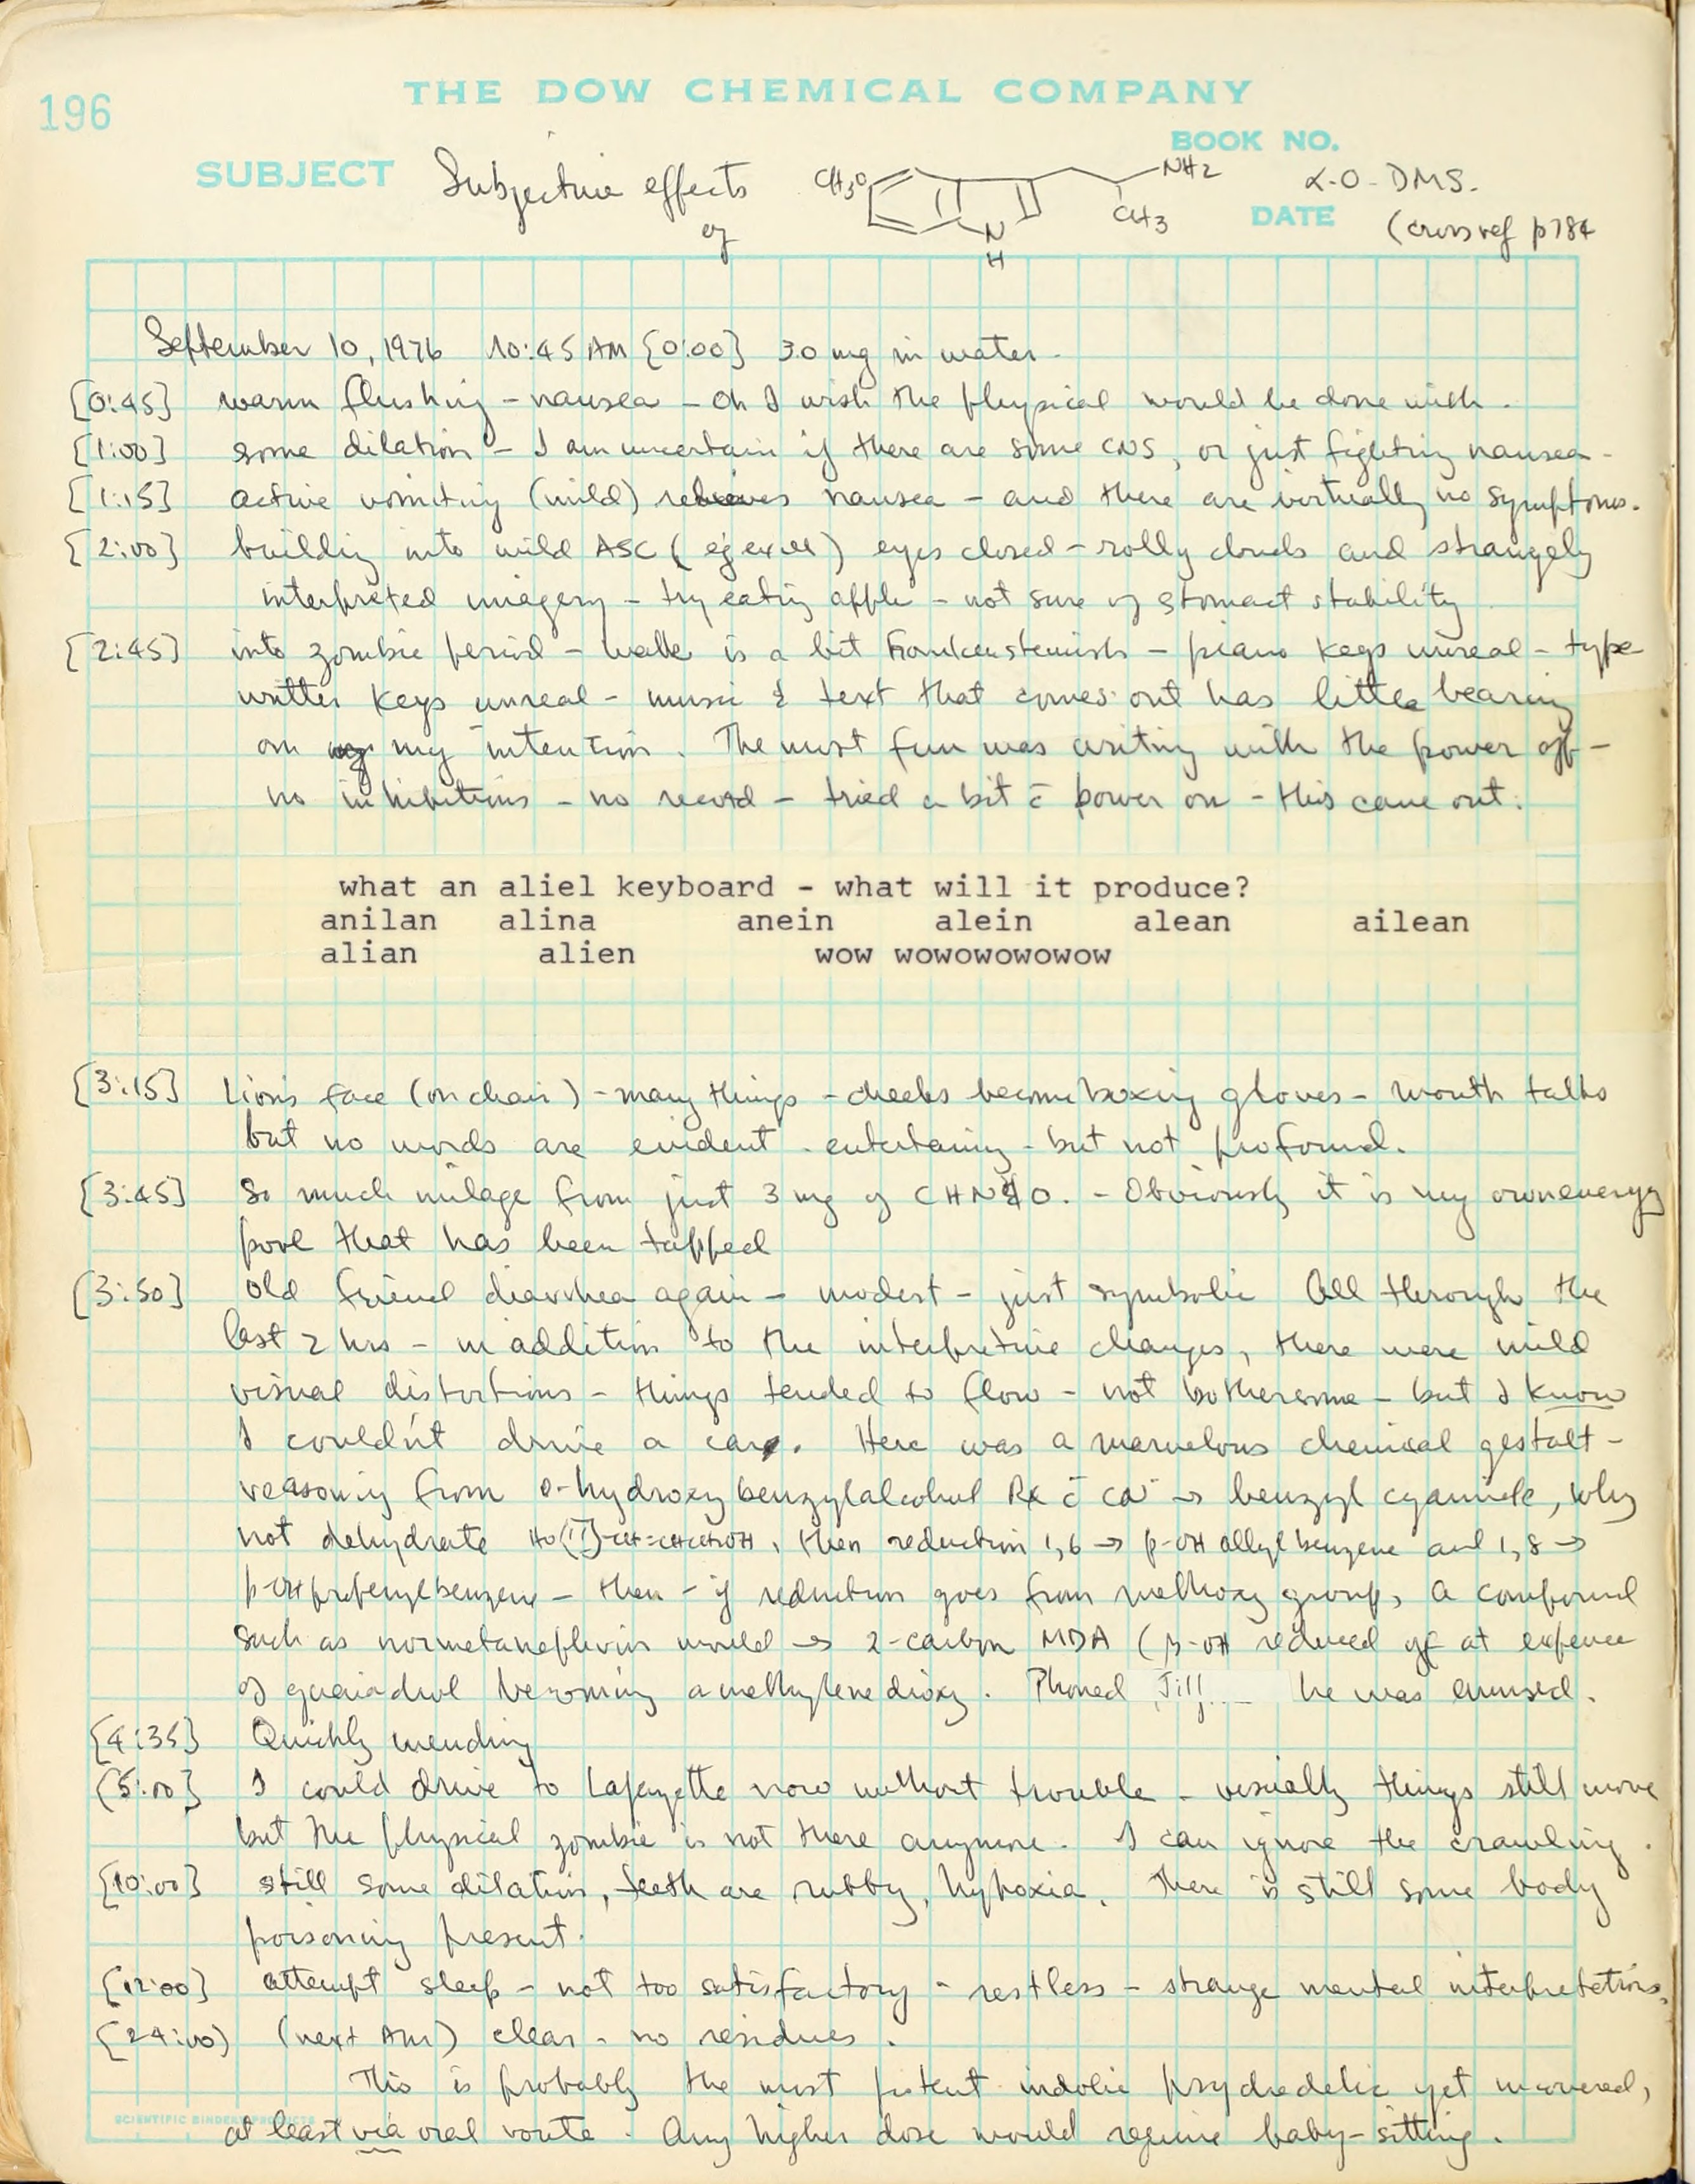 196
THE DOW CHEMICAL COMPANY
BOOK NO.
SUBJECT Subjective effects CH3O NH2 α-O-DMS.
of N H CH3 DATE (cross ref p 184
September 10, 1976 10:45 AM [0:00] 3.0 mg in water.
[0:45] warm flushing - nausea - oh I wish the physical would be done with.
[1:00] some dilation - I am uncertain if there are some CNS, or just fighting nausea -
[1:15] active vomiting (mild) relieves nausea - and there are virtually no symptoms.
[2:00] building into mild ASC ( ) eyes closed - rolly clouds and strangely
interpreted imagery - try eating apple - not sure of stomact stability
[2:45] into zombie period - walk is a bit Frankensteinish - piano keys unreal - type-
writter keys unreal - music & text that comes out has little bearing
on my intention. The most fun was writing with the power off -
no inhibitions - no record - tried a bit c̄ power on - this came out:
what an aliel keyboard - what will it produce?
anilan alina anein alein alean ailean
alian alien wow wowowowowow
[3:15] Lion's face (on chair) - many things - cheeks become boxing gloves - mouth talks
but no words are evident - entertaining - but not profound.
[3:45] So much milage from just 3 mg of CHN&O. - Obviously it is my own energy
pool that has been tapped
[3:50] old friend diarrhea again - modest - just symbolic All through the
last 2 hrs - in addition to the interpretive changes, there were mild
visual distortions - things tended to flow - not bothersome - but I know
I couldn't drive a car. Here was a marvelous chemical gestalt -
reasoning from o-hydroxybenzylalcohol Rx c̄ CN⁻ → benzyl cyanide, why
not dehydrate HO[ ]-CH=CHCH2OH, then reduction 1,6 → p-OH allylbenzene and 1,8 →
p-OH propenylbenzene - then - if reduction goes from methoxy group, a compound
such as normetanephrin would → 2-carbon MDA (β-OH reduced off at expence
of guaiacol becoming a methylenedioxy. Phoned Jill he was amused.
[4:35] Quickly mending
[5:00] I could drive to Lafayette now without trouble - visually things still move
but the physical zombie is not there anymore. I can ignore the crawling.
[10:00] still some dilation, teeth are rubby, hypoxia. There is still some body
poisoning present.
[12:00] attempt sleep - not too satisfactory - restless - strange mental interpretations.
[24:00] (next AM) clear - no residues.
This is probably the most potent indolic psychedelic yet uncovered,
SCIENTIFIC BINDERY PRODUCTS
at least via oral route. Any higher dose would require baby-sitting.